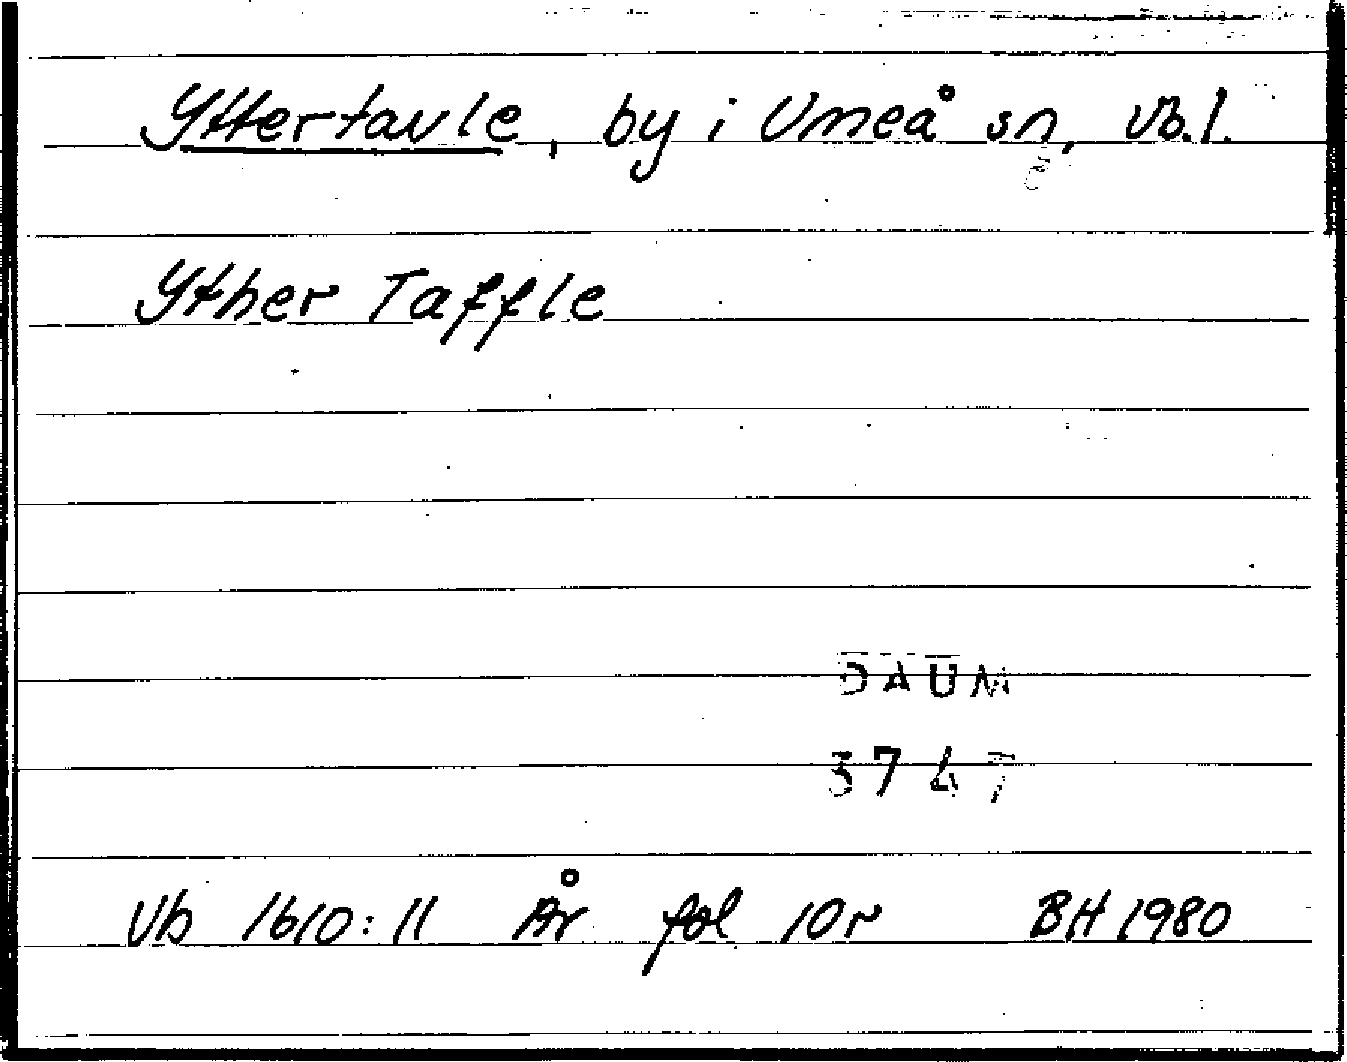 Yttertavle, by i Umeå sn, Vb.l.
Yther Taffle
DAUM
3747
Vb 1610:11 År fol 10r BH 1980